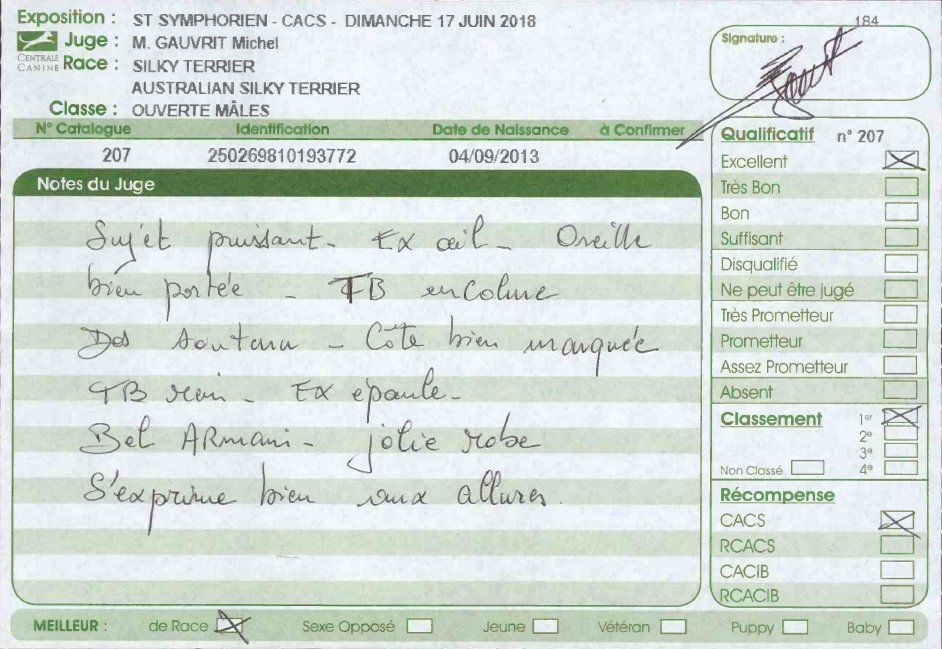 Exposition : ST SYMPHORIEN - CACS - DIMANCHE 17 JUIN 2018
184
Juge : M. GAUVRIT Michel
Signature :
CENTRALE CANINE
Race : SILKY TERRIER
AUSTRALIAN SILKY TERRIER
Classe : OUVERTE MÂLES
N° Catalogue Identification Date de Naissance à Confirmer
207 250269810193772 04/09/2013
Notes du Juge
Sujet puissant - Ex œil - Oreille
bien portée - TB encolure
Dos soutenu - Côte bien marquée
TB rein - Ex épaule -
Bel ARmani - jolie robe
S'exprime bien aux allures.
Qualificatif n° 207
Excellent
Très Bon
Bon
Suffisant
Disqualifié
Ne peut être jugé
Très Prometteur
Prometteur
Assez Prometteur
Absent
Classement 1er
2e
3e
Non Classé 4e
Récompense
CACS
RCACS
CACIB
RCACIB
MEILLEUR : de Race Sexe Opposé Jeune Vétéran Puppy Baby